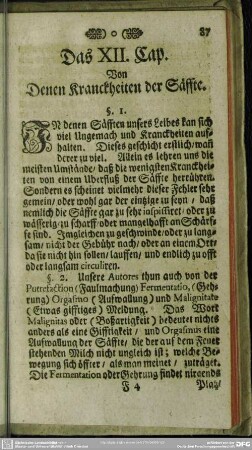 87
Das XII. Cap.
Von
Denen Kranckheiten der Säffte.
§. 1.
IN denen Säfften unsers Leibes kan sich
viel Ungemach und Kranckheiten auf-
halten. Dieses geschicht erstlich/ wañ
derer zu viel. Allein es lehren uns die
meisten Umstände/ daß die wenigsten Kranckhei-
ten von einem Uberfluß der Säffte herrühren.
Sondern es scheinet vielmehr dieser Fehler sehr
gemein/ oder wohl gar der eintzige zu seyn/ daß
nemlich die Säffte gar zu sehr inspissiret/ oder zu
wässerig/ zu scharff oder mangelhafft an Schärf-
fe sind. Imgleichen zu geschwinde/ oder zu lang-
sam/ nicht der Gebühr nach/ oder an einem Ort/
da sie nicht hin sollen/ lauffen/ und endlich zu offt
oder langsam circuliren.
§. 2. Unsere Autores thun auch von der
Putrefaction (Faulmachung) Fermentatio, (Geh-
rung) Orgasmo (Aufwallung) und Malignitate
(Etwas gifftiges) Meldung. Das Wort
Malignitas oder (Boßartigkeit) bedeutet nichts
anders als eine Gifftigkeit/ und Orgasmus eine
Aufwallung der Säffte, die der auf dem Feuer
stehenden Milch nicht ungleich ist; welche Be-
wegung sich öffter/ als man meinet/ zuträget.
Die Fermentation oder Gehrung findet nirgends
F 4 Platz/